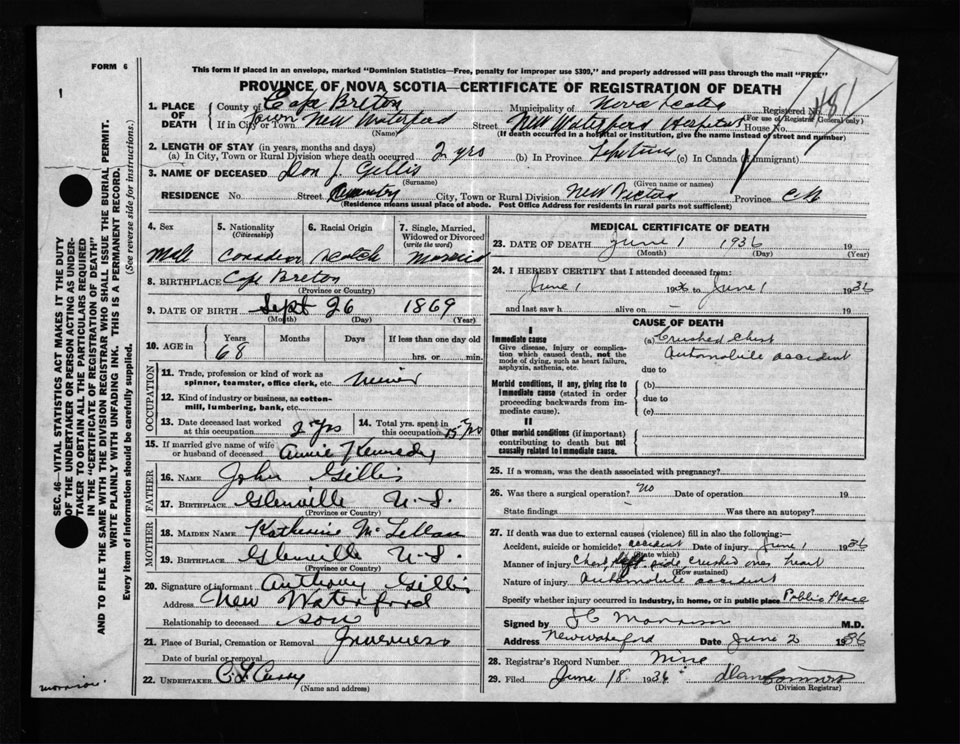 FORM 6
This form if placed in an envelope, marked "Dominion Statistics—Free, penalty for improper use $300," and properly addressed will pass through the mail "FREE"
PROVINCE OF NOVA SCOTIA—CERTIFICATE OF REGISTRATION OF DEATH
1. PLACE OF DEATH County of Cape Breton Municipality of Nova Scotia Registered No.
If in City or Town Town New Waterford Street New Waterford Hospital House No. (For use of Registrar General only)
(Name) (If death occurred in a hospital or institution, give the name instead of street and number)
2. LENGTH OF STAY (in years, months and days)
(a) In City, Town or Rural Division where death occurred 2 yrs (b) In Province Lifetime (c) In Canada (if immigrant)
3. NAME OF DECEASED Don J. Gillis
(Surname) (Given name or names)
RESIDENCE No. Street Country City, Town or Rural Division New Victoria Province C B
(Residence means usual place of abode. Post Office Address for residents in rural parts not sufficient)
SEC. 46—VITAL STATISTICS ACT MAKES IT THE DUTY
OF THE UNDERTAKER OR PERSON ACTING AS UNDER-
TAKER TO OBTAIN ALL THE PARTICULARS REQUIRED
IN THE "CERTIFICATE OF REGISTRATION OF DEATH"
AND TO FILE THE SAME WITH THE DIVISION REGISTRAR WHO SHALL ISSUE THE BURIAL PERMIT.
WRITE PLAINLY WITH UNFADING INK. THIS IS A PERMANENT RECORD.
Every item of information should be carefully supplied. (See reverse side for instructions.)
4. Sex
Male
5. Nationality
(Citizenship)
Canadian
6. Racial Origin
Scotch
7. Single, Married,
Widowed or Divorced
(write the word)
Married
8. BIRTHPLACE Cape Breton
(Province or Country)
9. DATE OF BIRTH Sept 26 1869
(Month) (Day) (Year)
10. AGE in Years Months Days If less than one day old
68 hrs. or min.
OCCUPATION
11. Trade, profession or kind of work as
spinner, teamster, office clerk, etc. Miner
12. Kind of industry or business, as cotton-
mill, lumbering, bank, etc.
13. Date deceased last worked
at this occupation 2 yrs
14. Total yrs. spent in
this occupation
15. If married give name of wife
or husband of deceased Annie Kennedy
FATHER
16. NAME John Gillis
17. BIRTHPLACE Glenville N. S.
(Province or Country)
MOTHER
18. MAIDEN NAME Katherine McLellan
19. BIRTHPLACE Glenville N. S.
(Province or Country)
20. Signature of informant Anthony Gillis
Address New Waterford
Relationship to deceased son
21. Place of Burial, Cremation or Removal Inverness
Date of burial or removal
22. UNDERTAKER
(Name and address)
MEDICAL CERTIFICATE OF DEATH
23. DATE OF DEATH June 1 1936 19
(Month) (Day) (Year)
24. I HEREBY CERTIFY that I attended deceased from:
June 1 1936 to June 1 1936
and last saw h alive on 19
CAUSE OF DEATH
I
Immediate cause
Give disease, injury or complica-
tion which caused death, not the
mode of dying, such as heart failure,
asphyxia, asthenia, etc.
(a) Crushed Chest
Automobile accident
due to
Morbid conditions, if any, giving rise to
immediate cause (stated in order
proceeding backwards from im-
mediate cause).
(b)
due to
(c)
II
Other morbid conditions (if important)
contributing to death but not
causally related to immediate cause.
25. If a woman, was the death associated with pregnancy?
26. Was there a surgical operation? No Date of operation 19
State findings Was there an autopsy?
27. If death was due to external causes (violence) fill in also the following:—
Accident, suicide or homicide? accident Date of injury June 1 1936
(State which)
Manner of injury Chest left side crushed over heart
(How sustained)
Nature of injury Automobile accident
Specify whether injury occurred in industry, in home, or in public place Public Place
Signed by Morrison M.D.
Address New Waterford Date June 2 1936
28. Registrar's Record Number Nine
29. Filed June 18 1936 19
(Division Registrar)
morrison.